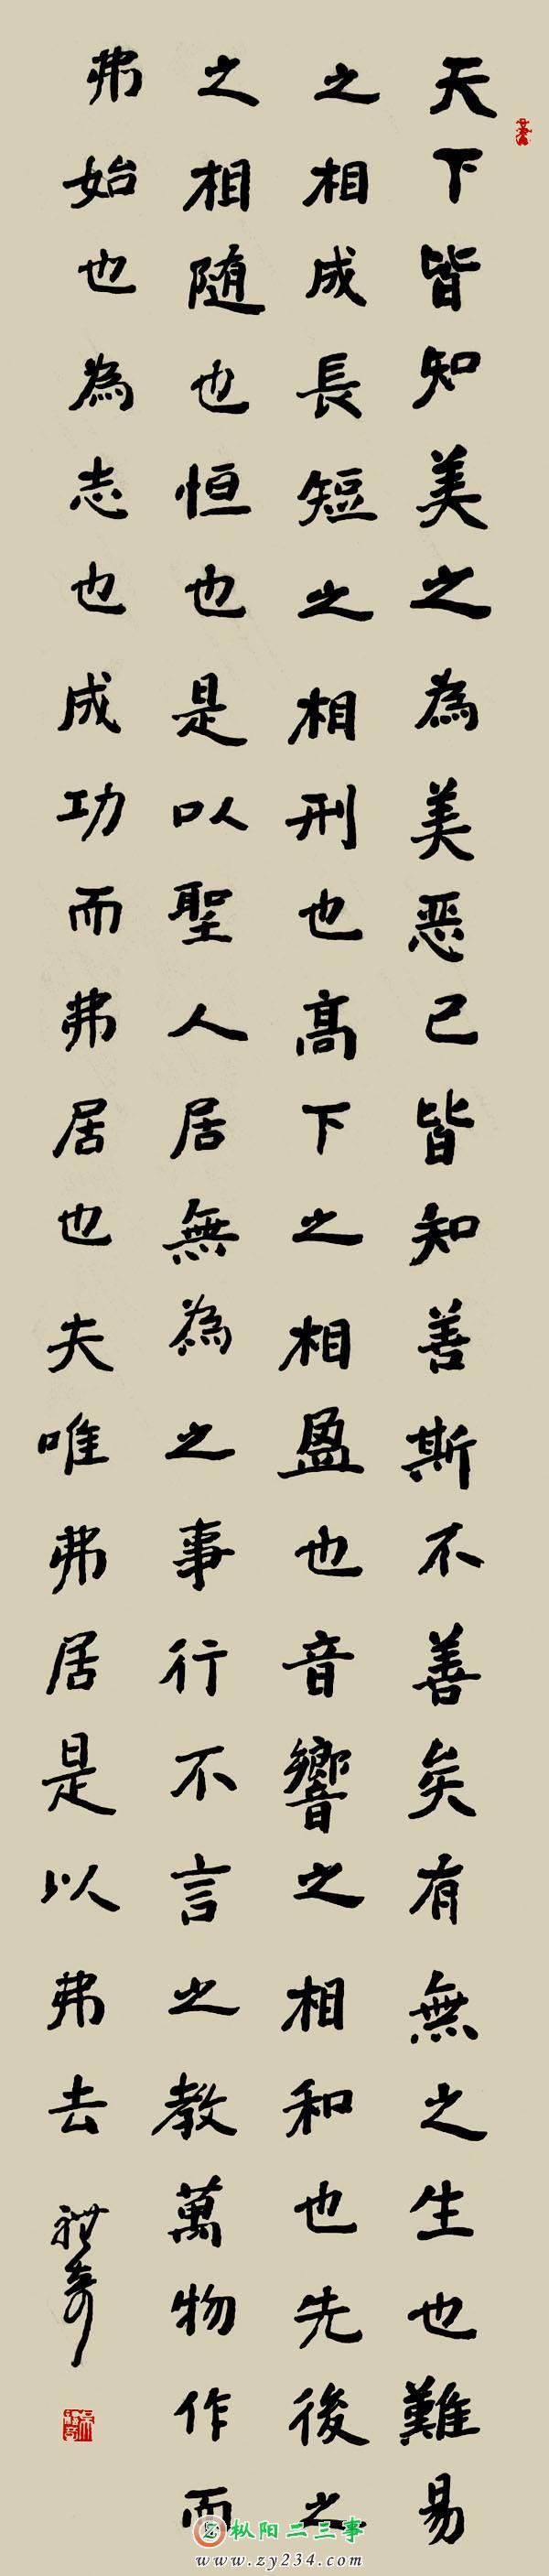 天下皆知美之為美惡已皆知善斯不善矣有無之生也難易
之相成長短之相刑也高下之相盈也音響之相和也先後之
之相随也恒也是以聖人居無為之事行不言之教萬物作而
弗始也為志也成功而弗居也夫唯弗居是以弗去
枞阳二三事
www.zy234.com